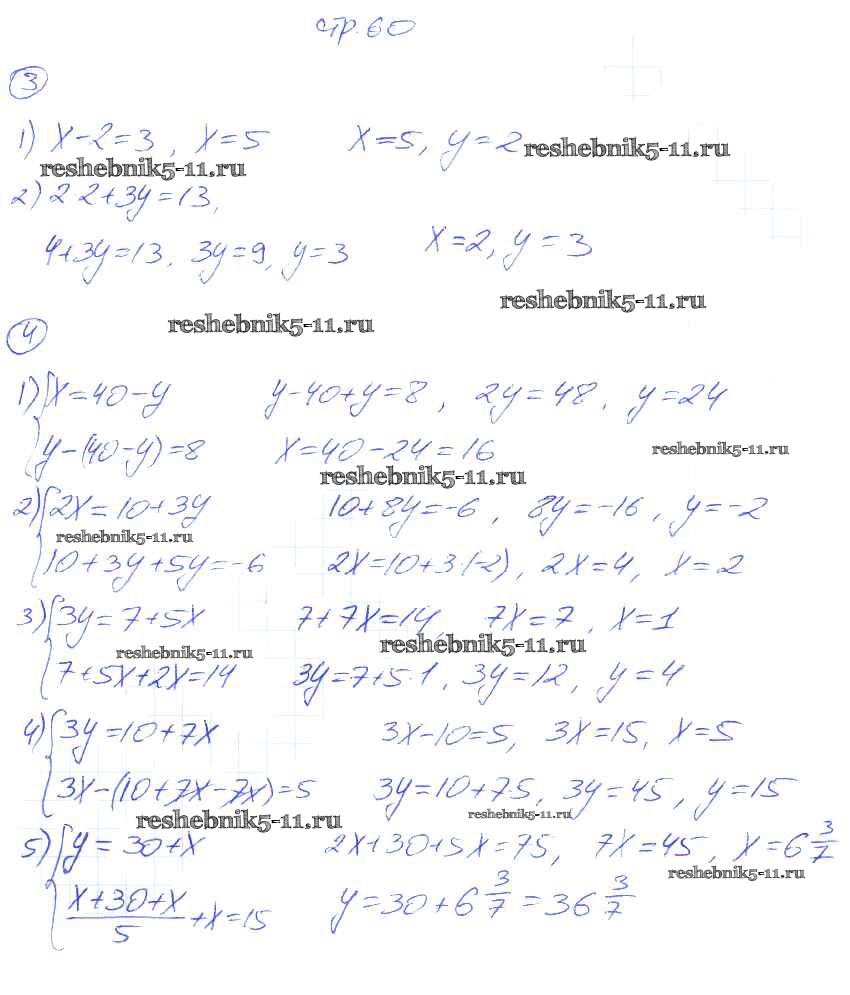 стр. 60
3
1) x-2=3, x=5 x=5, y=2 reshebnik5-11.ru
reshebnik5-11.ru
2) 2 2+3y=13,
4+3y=13. 3y=9, y=3 x=2, y=3
reshebnik5-11.ru
reshebnik5-11.ru
4
1) {x=40-y y-40+y=8, 2y=48. y=24
y-(40-y)=8 x=40-24=16 reshebnik5-11.ru
reshebnik5-11.ru
2) {2x=10+3y 10+8y=-6, 8y=-16, y=-2
reshebnik5-11.ru
10+3y+5y=-6 2x=10+3·(-2), 2x=4, x=2
3) {3y=7+5x 7+7x=14 7x=7, x=1
reshebnik5-11.ru reshebnik5-11.ru
7+5x+2x=14 3y=7+5·1, 3y=12, y=4
4) {3y=10+7x 3x-10=5, 3x=15, x=5
3x-(10+7x-7x)=5 3y=10+7·5, 3y=45, y=15
reshebnik5-11.ru reshebnik5-11.ru
5) {y=30+x 2x+30+5x=75, 7x=45, x=6 3/7
reshebnik5-11.ru
(x+30+x)/5+x=15 y=30+6 3/7=36 3/7